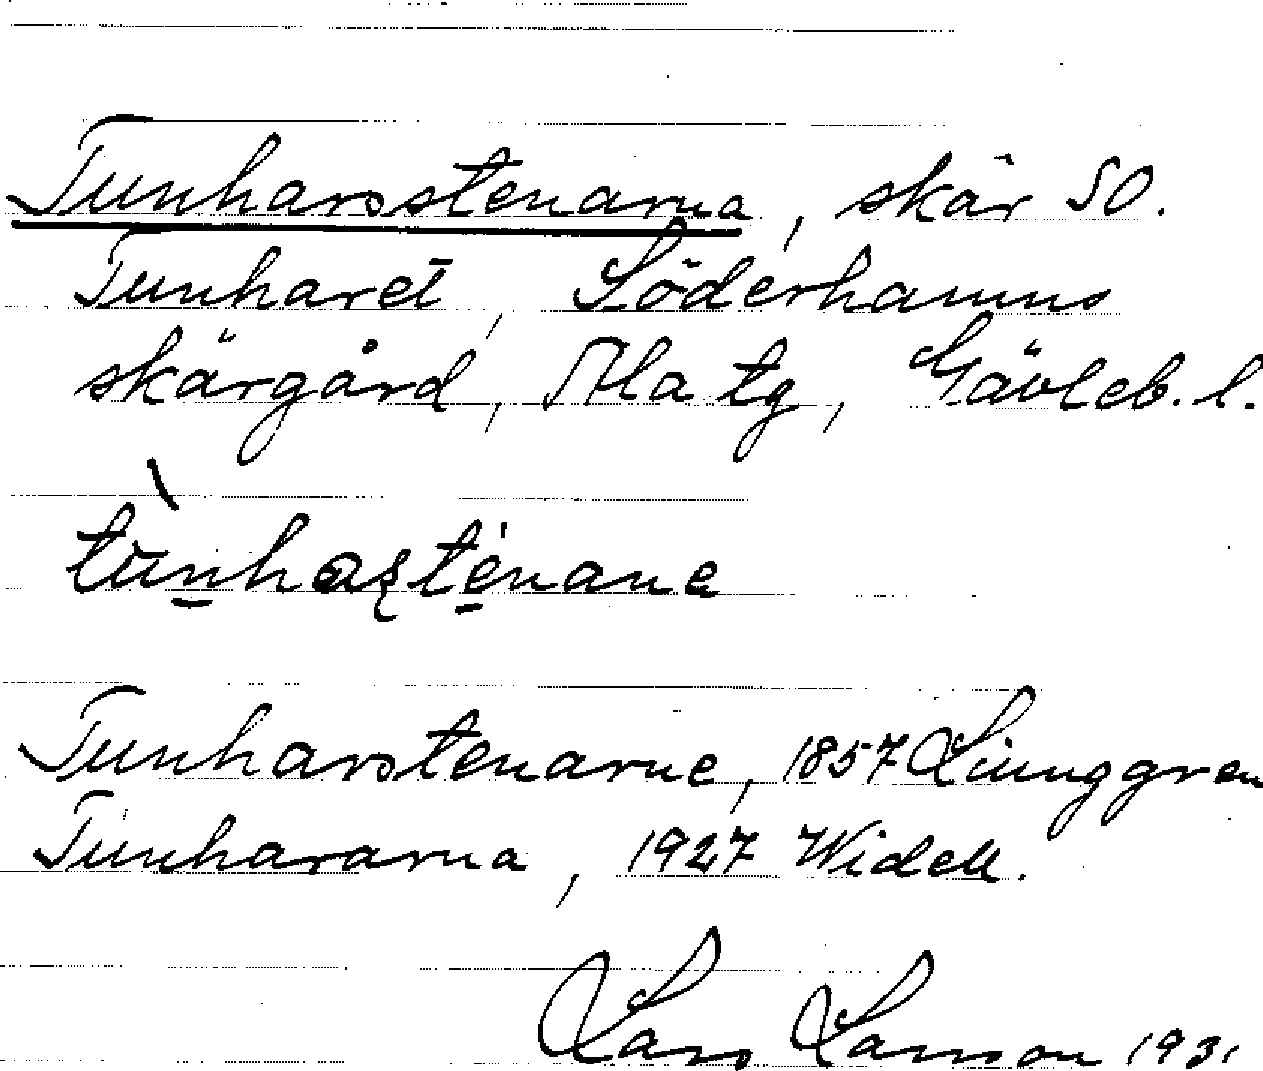 Tunharsstenarna, skär SO.
Tunharet, Söderhamns
skärgård, Ala tg, Gävleb. l.
tùnhaʂténane
Tunharstenarne, 1857 Ljunggren
Tunhararna, 1927 Widell.
Lars Larsson 1931